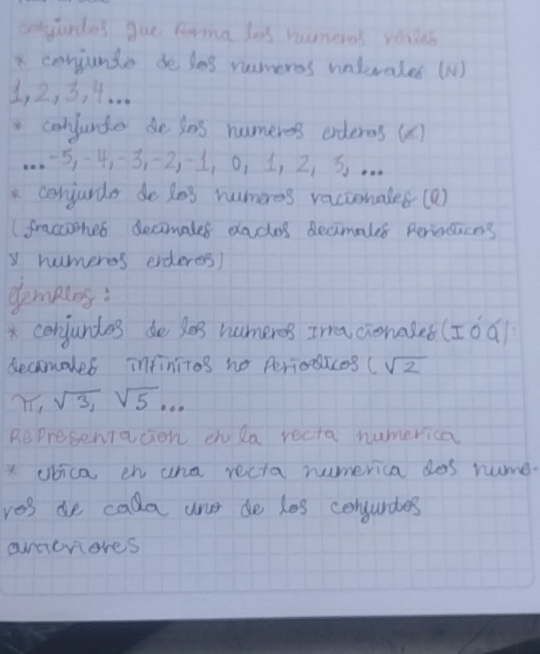 conjuntos que forma los numeros reales
* conjunto de los numeros naturales (N)
1, 2, 3, 4...
* conjunto de los numeros enteros (Z)
...-5, -4, -3, -2, -1, 0, 1, 2, 3, ...
* conjunto de los numeros racionales (Q)
(fracciones decimales dados decimales Periodicos
y numeros enteros)
Ejemplos:
* conjuntos de los numeros Irracionales (I Ó Q)
decimales infinitos no Periodicos (√2
π, √3, √5...
Representacion en la recta numerica
* ubica en una recta numerica dos nume-
ros de cada uno de los conjuntos
anteriores